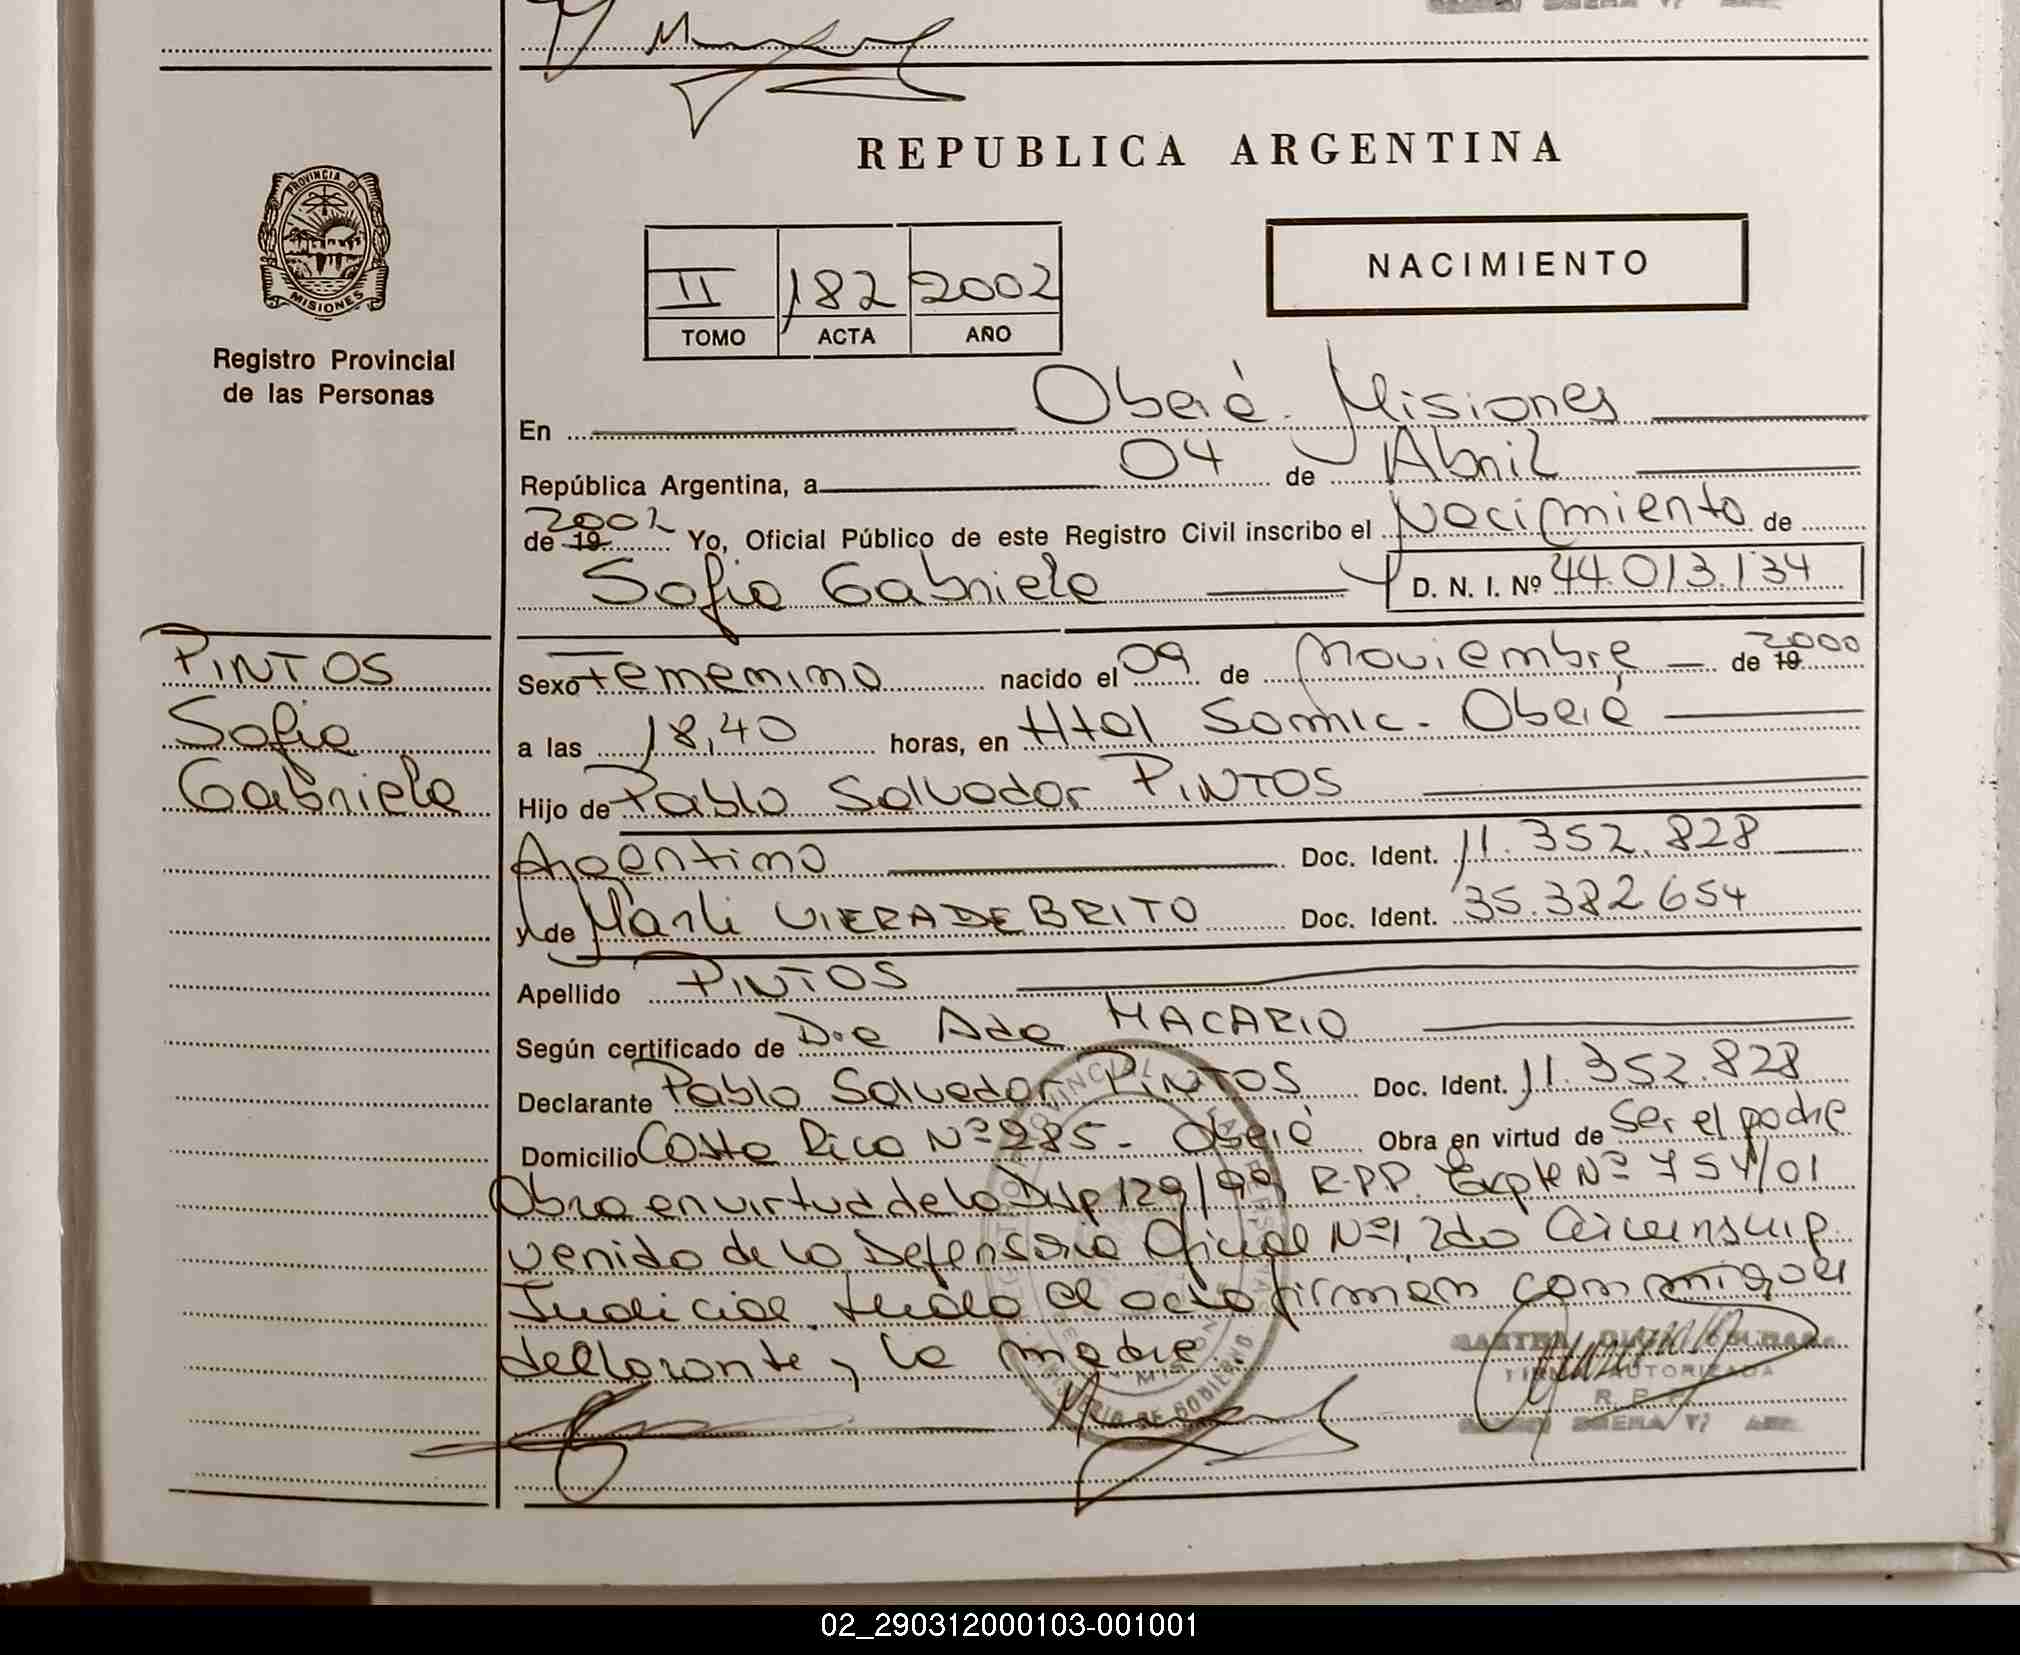 REPUBLICA ARGENTINA
PROVINCIA DE
MISIONES
Registro Provincial
de las Personas
II 182 2002
TOMO ACTA AÑO
NACIMIENTO
En Oberá. Misiones
República Argentina, a 04 de Abril
2002
de 19 Yo, Oficial Público de este Registro Civil inscribo el Nacimiento de
Sofia Gabriela D. N. I. Nº 44.013.134
PINTOS
Sofia
Gabriela
Sexo Femenino nacido el 09 de Noviembre de 19 2000
a las 18,40 horas, en Htal Samic - Oberá
Hijo de Pablo Salvador PINTOS
Argentino Doc. Ident. 11.352.828
y de Marli VIERA DE BRITO Doc. Ident. 35.382654
Apellido PINTOS
Según certificado de Dra Ada MACARIO
Declarante Pablo Salvador PINTOS Doc. Ident. 11.352.828
Domicilio Costa Rica Nº 285 - Oberá Obra en virtud de Ser el padre
Obra en virtud de la Disp 129/99 R.P.P. Expte Nº 754/01
venido de la Defensoria Oficial Nº1, 2da Circunscrip.
Judicial. Leida el acta firman conmigo el
declarante y la madre.
FIRMA AUTORIZADA
R. P. P.
02_290312000103-001001